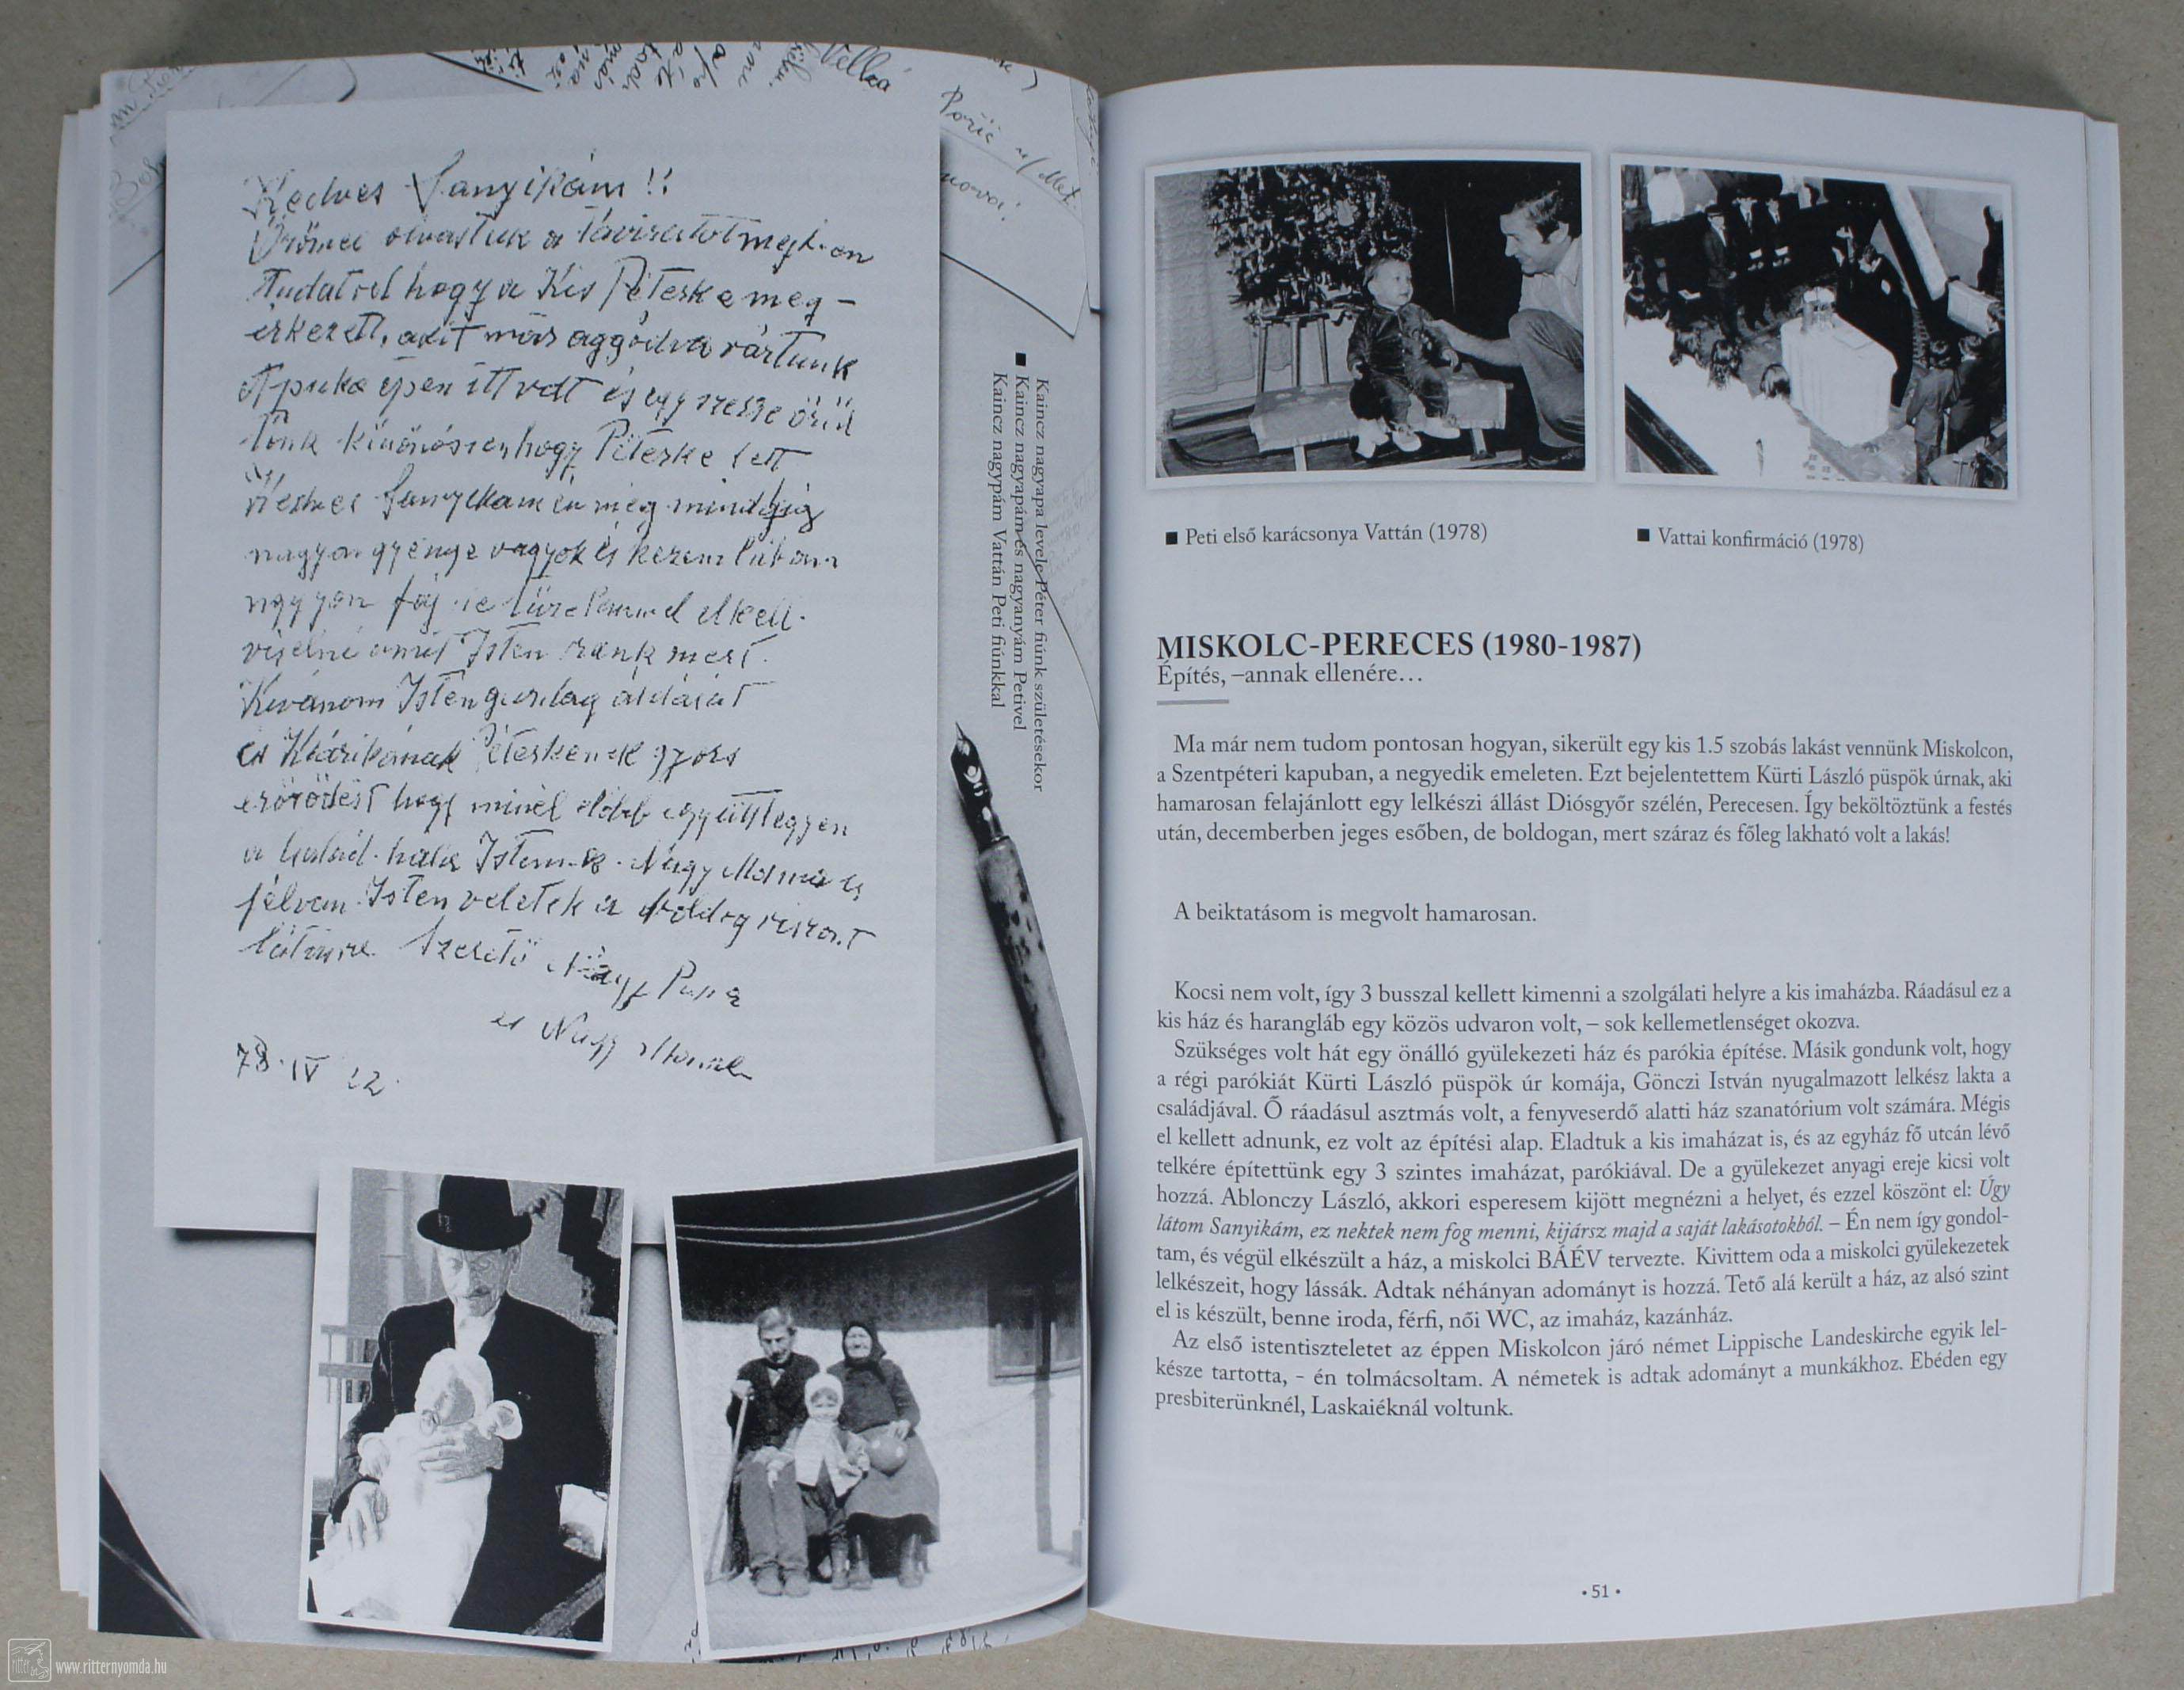 Kedves Sanyikám!!
olvastuk a táviratot melyben
tudatod hogy a Kis Péterke meg-
érkezett, akit már aggódva vártunk
Apuka épen itt volt és egyszerre örül
tönk különösen hogy Péterke lett
Kedves Sanyikám én még mindig
nagyon gyenge vagyok és kezem lábam
nagyon fáj de türelemmel el kell
viselni amit Isten ránk mért.
Kivánom Isten gazdag áldását
és Klárikának Péterkének gyors
erősödést hogy minél előbb együtt legyen
a család. hála Istennek. Nagy Mama is
jól van. Isten veletek a boldog viszont
látásra. Szerető Nagy Papa
és Nagy Mama
78. IV 22.
■ Kaincz nagyapa levele Péter fiúnk születésekor
■ Kaincz nagyapám és nagyanyám Petivel
Kaincz nagypám Vattán Peti fiúnkkal
Vellká
Poříč n/Met.
nova!
■ Peti első karácsonya Vattán (1978)
■ Vattai konfirmáció (1978)
MISKOLC-PERECES (1980-1987)
Építés, –annak ellenére…
Ma már nem tudom pontosan hogyan, sikerült egy kis 1.5 szobás lakást vennünk Miskolcon,
a Szentpéteri kapuban, a negyedik emeleten. Ezt bejelentettem Kürti László püspök úrnak, aki
hamarosan felajánlott egy lelkészi állást Diósgyőr szélén, Perecesen. Így beköltöztünk a festés
után, decemberben jeges esőben, de boldogan, mert száraz és főleg lakható volt a lakás!
A beiktatásom is megvolt hamarosan.
Kocsi nem volt, így 3 busszal kellett kimenni a szolgálati helyre a kis imaházba. Ráadásul ez a
kis ház és harangláb egy közös udvaron volt, – sok kellemetlenséget okozva.
Szükséges volt hát egy önálló gyülekezeti ház és parókia építése. Másik gondunk volt, hogy
a régi parókiát Kürti László püspök úr komája, Gönczi István nyugalmazott lelkész lakta a
családjával. Ő ráadásul asztmás volt, a fenyveserdő alatti ház szanatórium volt számára. Mégis
el kellett adnunk, ez volt az építési alap. Eladtuk a kis imaházat is, és az egyház fő utcán lévő
telkére építettünk egy 3 szintes imaházat, parókiával. De a gyülekezet anyagi ereje kicsi volt
hozzá. Ablonczy László, akkori esperesem kijött megnézni a helyet, és ezzel köszönt el: Úgy
látom Sanyikám, ez nektek nem fog menni, kijársz majd a saját lakásotokból. – Én nem így gondol-
tam, és végül elkészült a ház, a miskolci BÁÉV tervezte. Kivittem oda a miskolci gyülekezetek
lelkészeit, hogy lássák. Adtak néhányan adományt is hozzá. Tető alá került a ház, az alsó szint
el is készült, benne iroda, férfi, női WC, az imaház, kazánház.
Az első istentiszteletet az éppen Miskolcon járó német Lippische Landeskirche egyik lel-
késze tartotta, - én tolmácsoltam. A németek is adtak adományt a munkákhoz. Ebéden egy
presbiterünknél, Laskaiéknál voltunk.
• 51 •
www.ritternyomda.hu